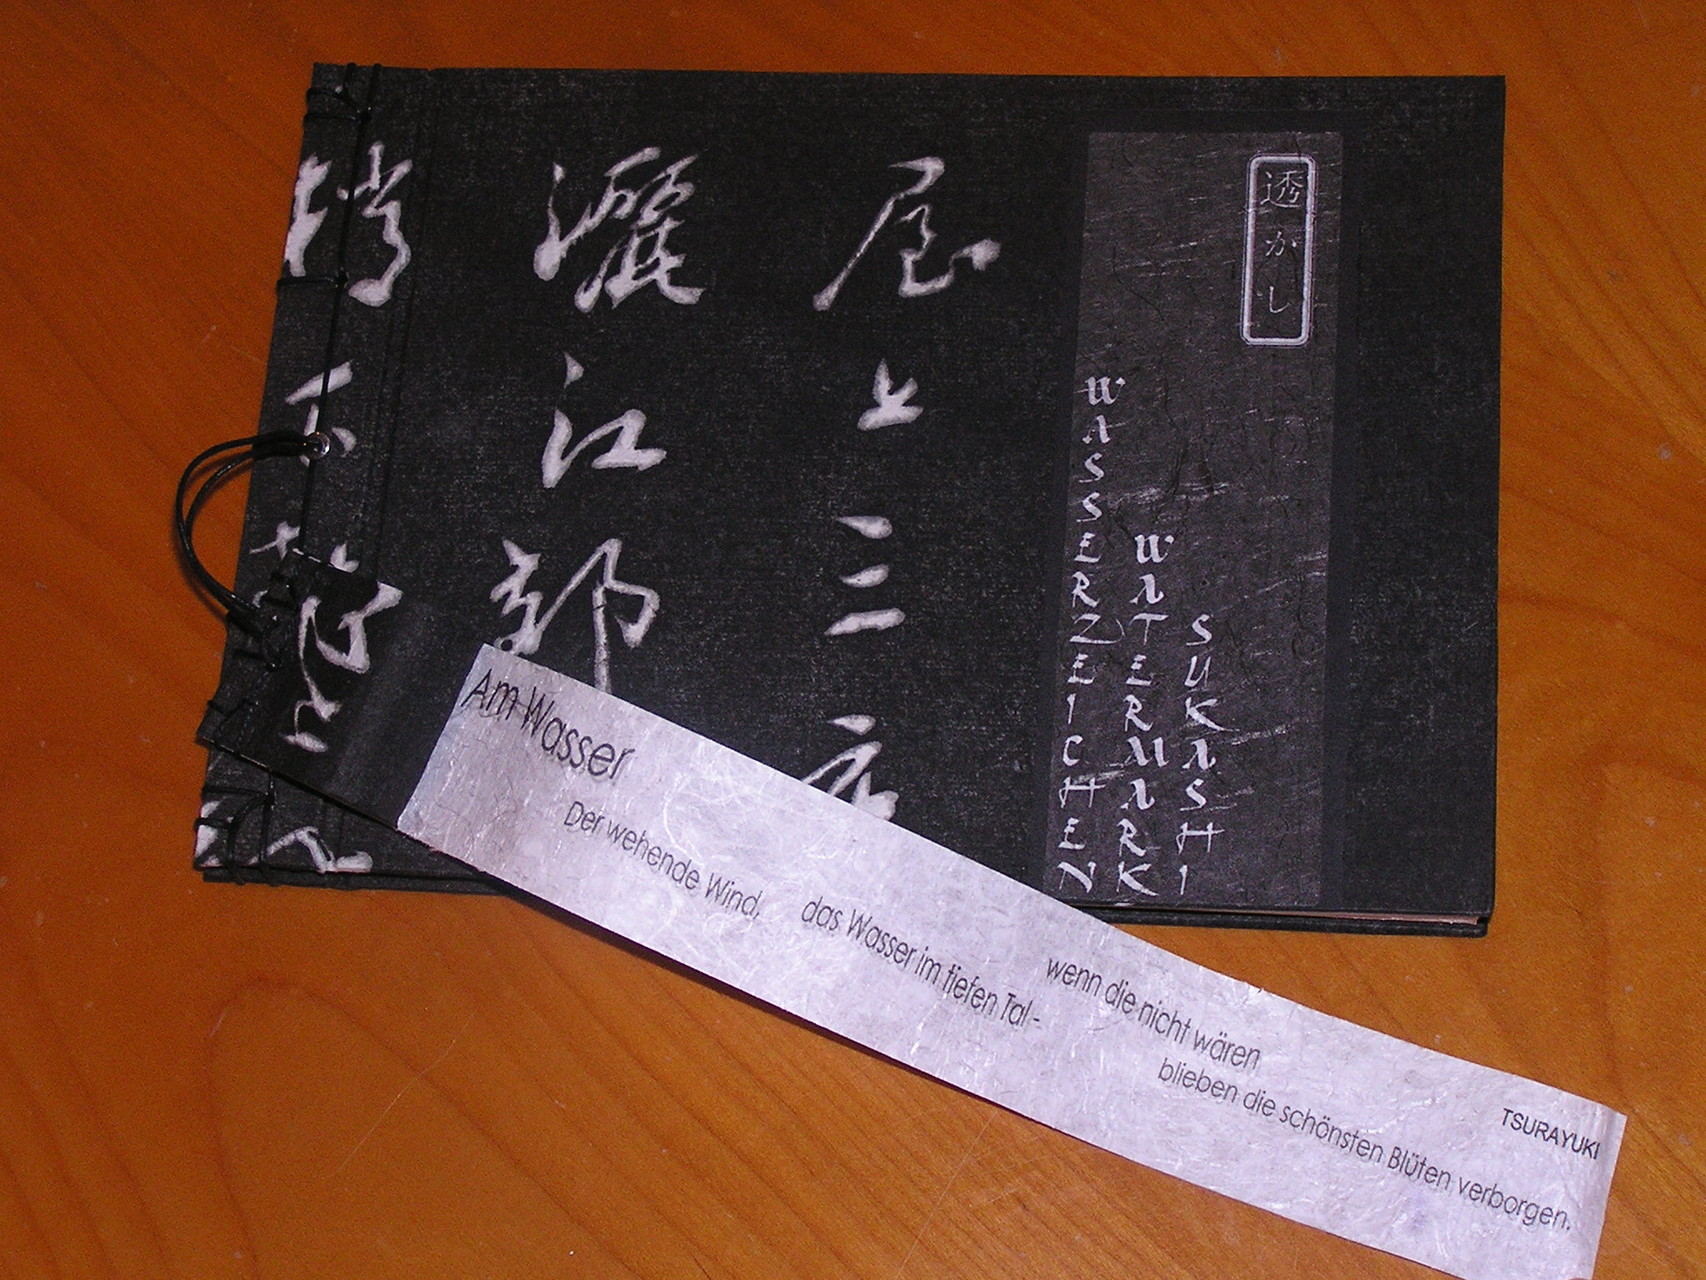 屋上三
灑江郭
透かし
WASSERZEICHEN
WATERMARK
SUKASHI
Am Wasser
Der wehende Wind,
das Wasser im tiefen Tal -
wenn die nicht wären
blieben die schönsten Blüten verborgen.
TSURAYUKI